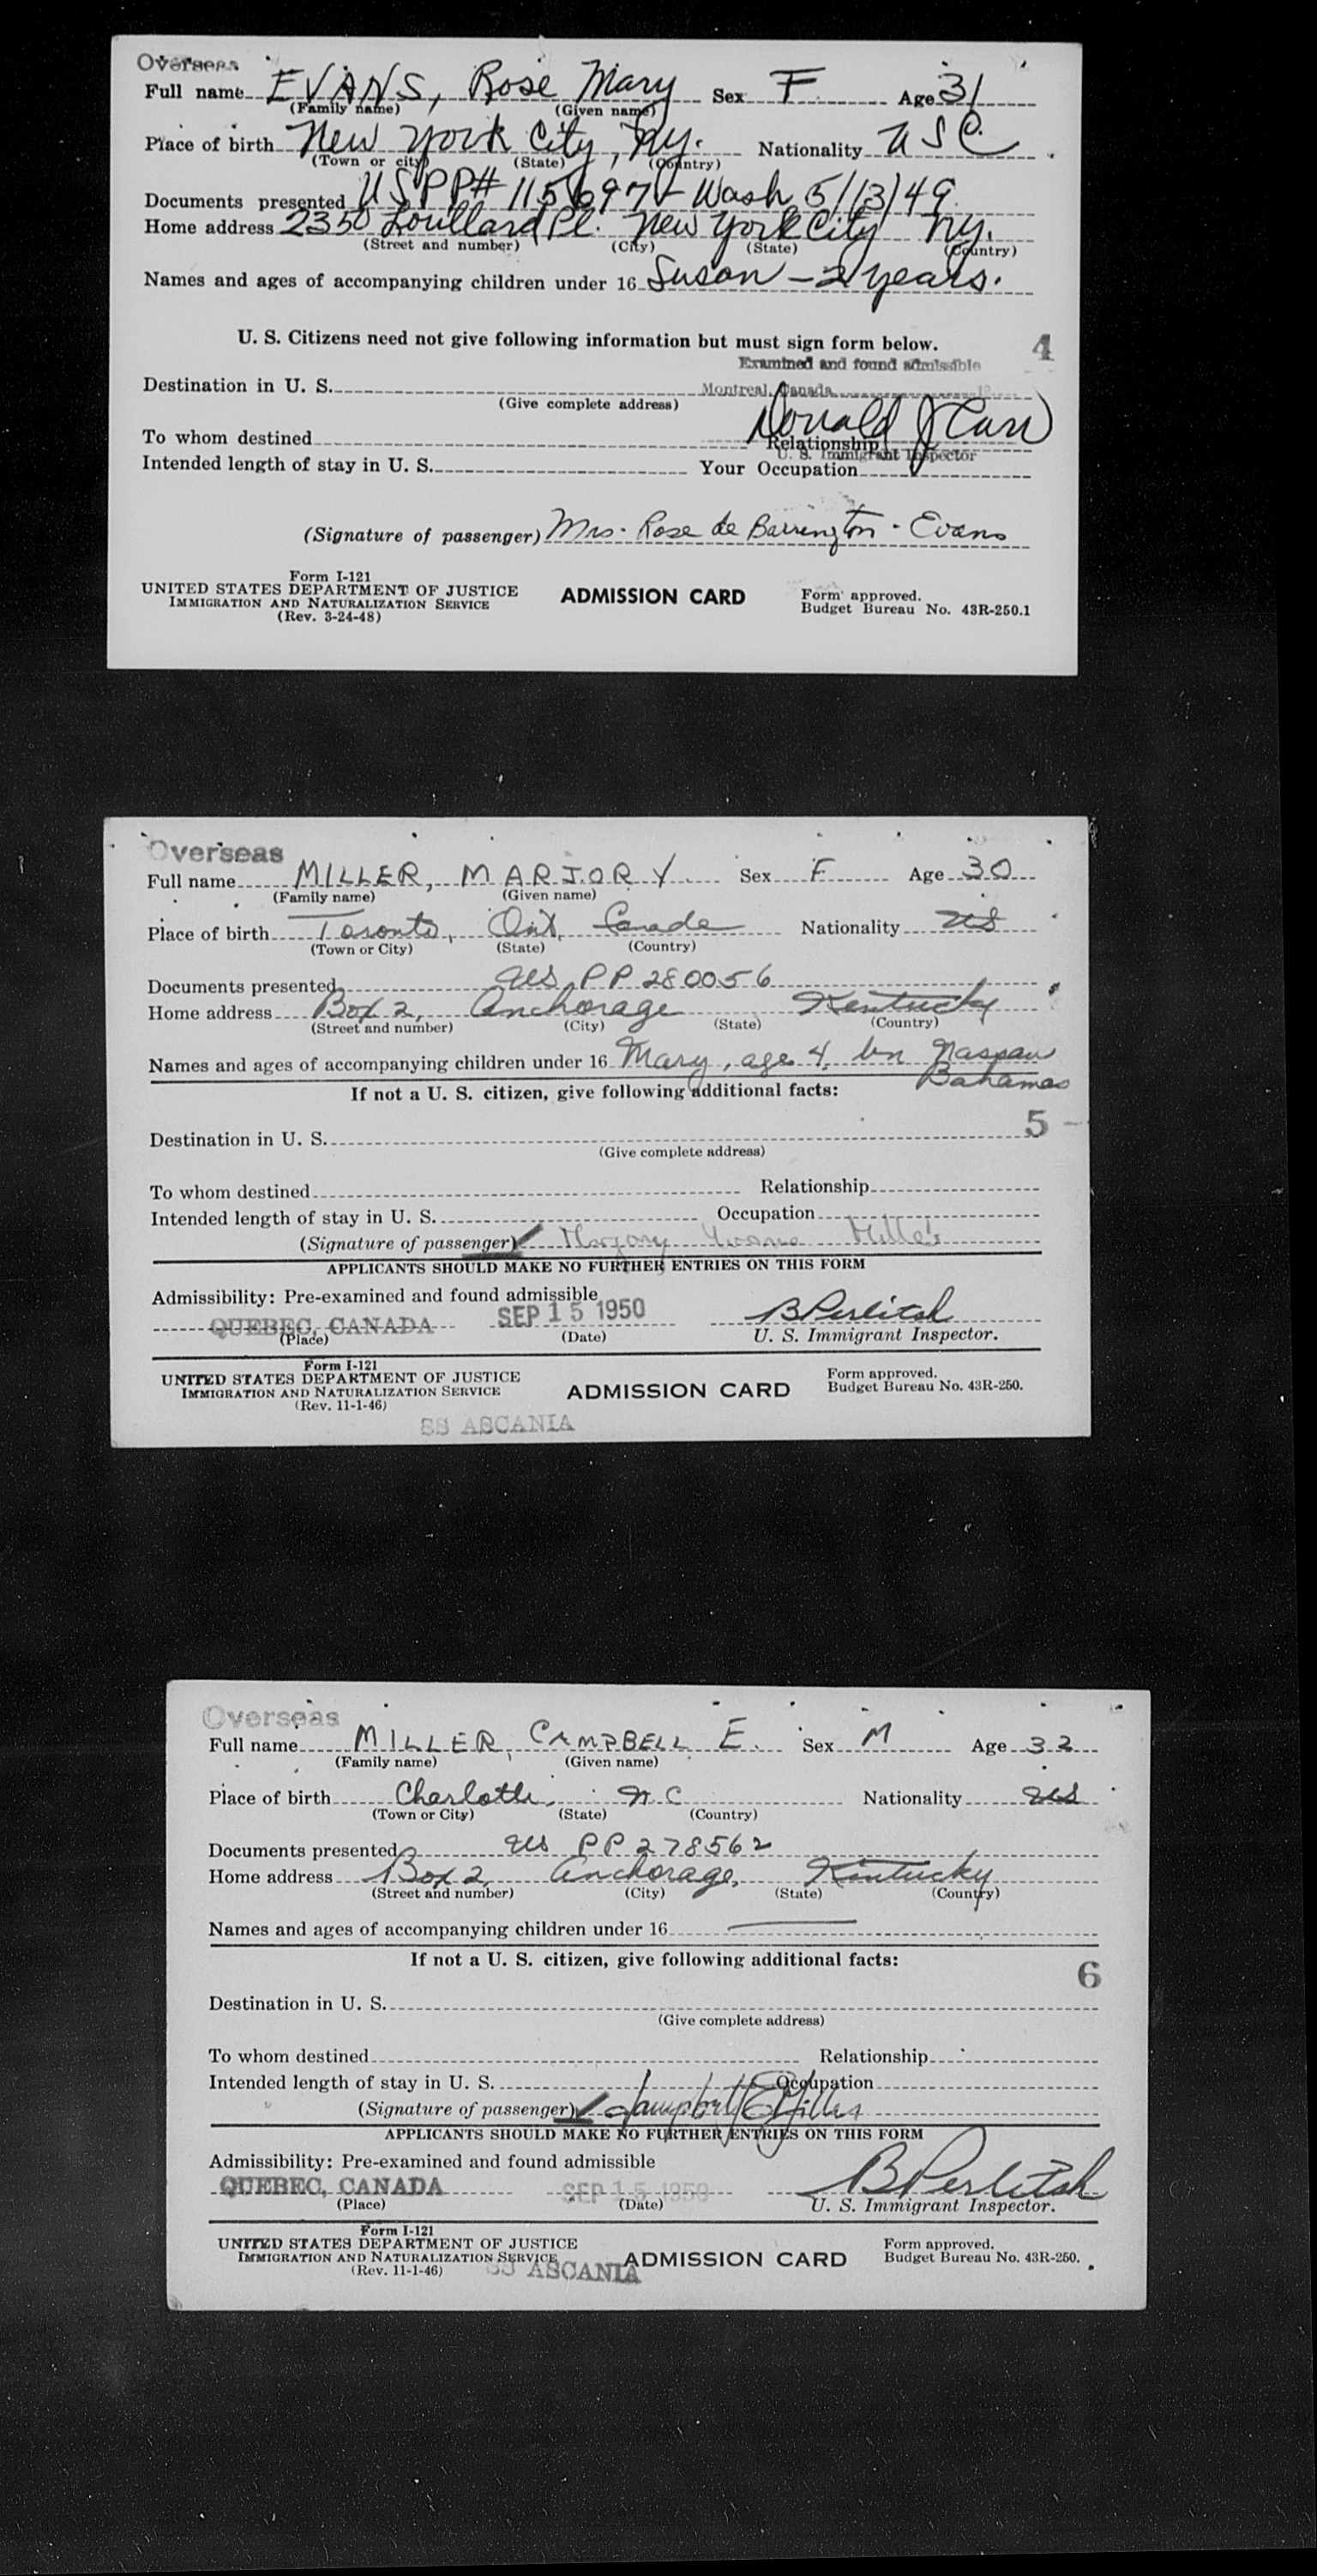 Overseas
Full name EVANS, Rose Mary Sex F Age 31
(Family name) (Given name)
Place of birth New York City, Ny. Nationality USC
(Town or city) (State) (Country)
Documents presented USPP# Wash 5/13/49
Home address 2350 Pl. New York City Ny.
(Street and number) (City) (State) (Country)
Names and ages of accompanying children under 16 Susan - 2 years.
U. S. Citizens need not give following information but must sign form below. 4
Examined and found admissible
Destination in U. S. Montreal, Canada
(Give complete address)
Donald J Carr
To whom destined Relationship
U. S. Immigrant Inspector
Intended length of stay in U. S. Your Occupation
(Signature of passenger) Mrs. Rose de Barrington - Evans
Form I-121
UNITED STATES DEPARTMENT OF JUSTICE
IMMIGRATION AND NATURALIZATION SERVICE
(Rev. 3-24-48)
ADMISSION CARD
Form approved.
Budget Bureau No. 43R-250.1
Overseas
Full name MILLER, MARJORY Sex F Age 30
(Family name) (Given name)
Place of birth Toronto, Ont. Canada Nationality US
(Town or City) (State) (Country)
Documents presented US PP 280056
Home address Box 2, Anchorage Kentucky
(Street and number) (City) (State) (Country)
Names and ages of accompanying children under 16 Mary, age 4, bn Nassau
Bahamas
If not a U. S. citizen, give following additional facts:
5
Destination in U. S.
(Give complete address)
To whom destined Relationship
Intended length of stay in U. S. Occupation
(Signature of passenger) Marjory Miller
APPLICANTS SHOULD MAKE NO FURTHER ENTRIES ON THIS FORM
Admissibility: Pre-examined and found admissible
QUEBEC, CANADA SEP 15 1950 B Perlitsh
(Place) (Date) U. S. Immigrant Inspector.
Form I-121
UNITED STATES DEPARTMENT OF JUSTICE
IMMIGRATION AND NATURALIZATION SERVICE
(Rev. 11-1-46)
ADMISSION CARD
Form approved.
Budget Bureau No. 43R-250.
SS ASCANIA
Overseas
Full name MILLER, CAMPBELL E. Sex M Age 32
(Family name) (Given name)
Place of birth Charlotte, N.C Nationality US
(Town or City) (State) (Country)
Documents presented US PP 278562
Home address Box 2, Anchorage, Kentucky
(Street and number) (City) (State) (Country)
Names and ages of accompanying children under 16
If not a U. S. citizen, give following additional facts:
6
Destination in U. S.
(Give complete address)
To whom destined Relationship
Intended length of stay in U. S. Occupation
(Signature of passenger) Campbell E Miller
APPLICANTS SHOULD MAKE NO FURTHER ENTRIES ON THIS FORM
Admissibility: Pre-examined and found admissible
QUEBEC, CANADA SEP 15 1950 B Perlitsh
(Place) (Date) U. S. Immigrant Inspector.
Form I-121
UNITED STATES DEPARTMENT OF JUSTICE
IMMIGRATION AND NATURALIZATION SERVICE
(Rev. 11-1-46)
SS ASCANIA
ADMISSION CARD
Form approved.
Budget Bureau No. 43R-250.